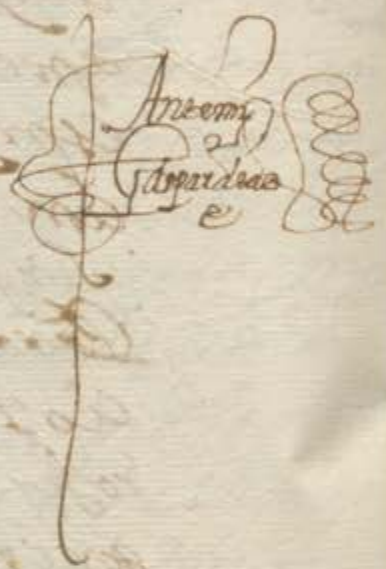 Antemi
Gaspar diaz
e